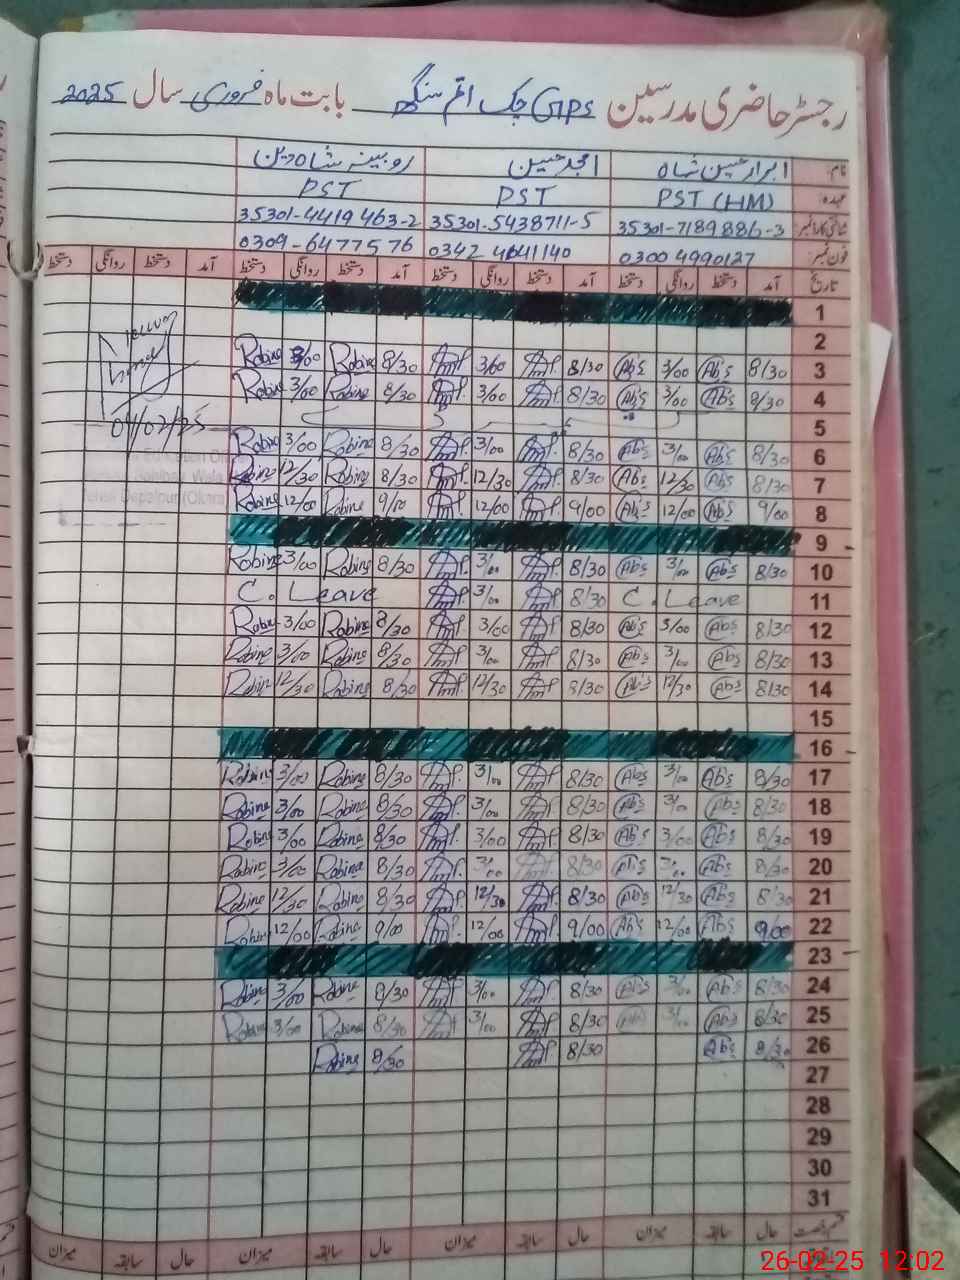 رجسٹر حاضری مدرسین GPS چک اتم سنگھ بابت ماہ فروری سال 2025
نام: ابرار حسین شاہ امجد حسین روبینہ شاہین
عہدہ: PST (HM) PST PST
شناختی کارڈ نمبر 35301-7189886-3 35301-5438711-5 35301-4419463-2
فون نمبر: 0300 4990127 0342 4641140 0309-6477576
تاریخ آمد دستخط روانگی دستخط آمد دستخط روانگی دستخط آمد دستخط روانگی دستخط آمد دستخط روانگی دستخط
1
2
3 8/30 Abs 3/00 Abs 8/30 3/00 8/30 Robina 3/00 Robina
4 8/30 Abs 3/00 Abs 8/30 3/00 8/30 Robina 3/00 Robina
04/02/25
5
6 8/30 Abs 3/00 Abs 8/30 3/00 8/30 Robina 3/00 Robina
7 8/30 Abs 12/30 Abs 8/30 12/30 8/30 Robina 12/30 Robina
8 9/00 Abs 12/00 Abs 9/00 12/00 9/00 Robina 12/00 Robina
9
10 8/30 Abs 3/00 Abs 8/30 3/00 8/30 Robina 3/00 Robina
11 C. Leave 8/30 3/00 C. Leave
12 8/30 Abs 3/00 Abs 8/30 3/00 8/30 Robina 3/00 Robina
13 8/30 Abs 3/00 Abs 8/30 3/00 8/30 Robina 3/00 Robina
14 8/30 Abs 12/30 Abs 8/30 12/30 8/30 Robina 12/30 Robina
15
16
17 8/30 Abs 3/00 Abs 8/30 3/00 8/30 Robina 3/00 Robina
18 8/30 Abs 3/00 Abs 8/30 3/00 8/30 Robina 3/00 Robina
19 8/30 Abs 3/00 Abs 8/30 3/00 8/30 Robina 3/00 Robina
20 8/30 Abs 3/00 Abs 8/30 3/00 8/30 Robina 3/00 Robina
21 8/30 Abs 12/30 Abs 8/30 12/30 8/30 Robina 12/30 Robina
22 9/00 Abs 12/00 Abs 9/00 12/00 9/00 Robina 12/00 Robina
23
24 8/30 Abs 3/00 Abs 8/30 3/00 8/30 Robina 3/00 Robina
25 8/30 Abs 3/00 Abs 8/30 3/00 8/30 Robina 3/00 Robina
26 8/30 Abs 8/30 8/30 Robina
27
28
29
30
31
قسم رخصت حال سابقہ میزان حال سابقہ میزان حال سابقہ میزان حال سابقہ میزان
26-02-25 12:02